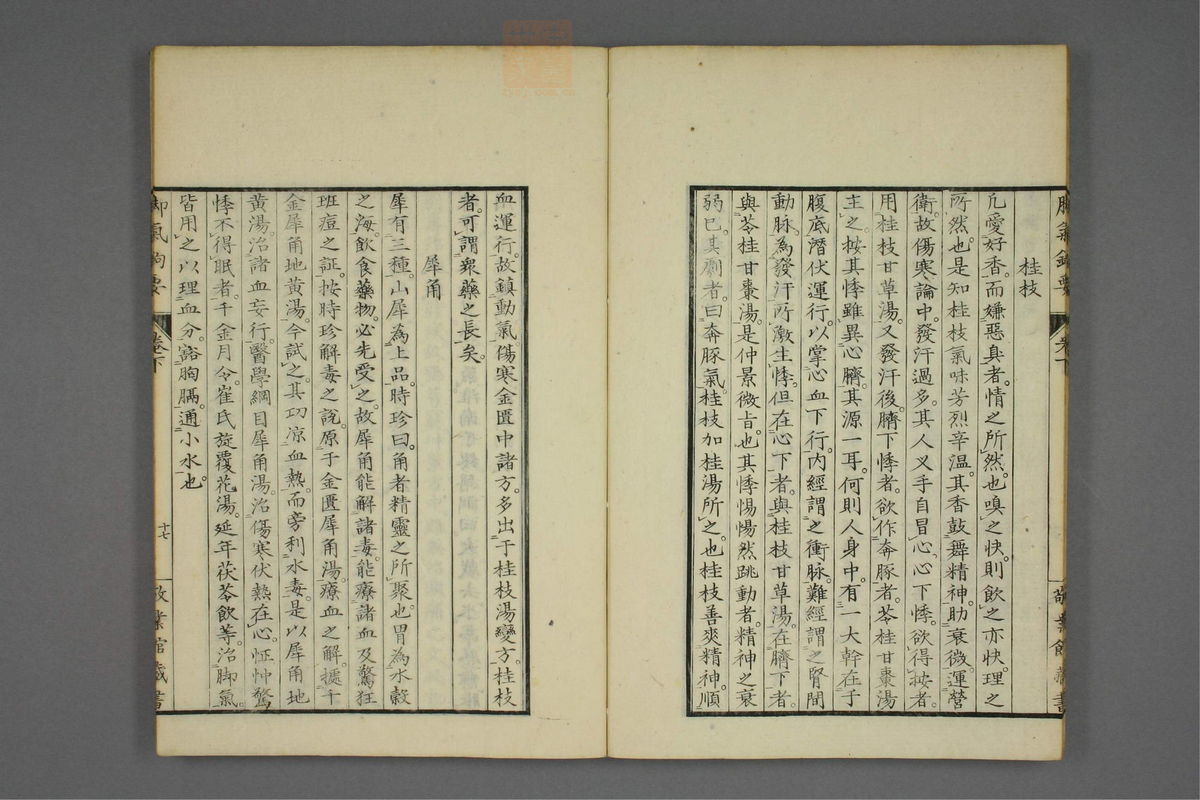 桂枝
凡愛好香而嫌惡臭者情之所然也嗅之快則飲之亦快理之
所然也是知桂枝氣味芳烈辛溫其香鼓舞精神助衰微運營
衛故傷寒論中發汗過多其人叉手自冒心心下悸欲得按者
用桂枝甘草湯又發汗後臍下悸者欲作奔豚者苓桂甘棗湯
主之按其悸雖異心臍其源一耳何則人身中有一大幹在于
腹底潛伏運行以掌心血下行內經謂之衝脉難經謂之腎間
動脉為發汗所激生悸但在心下者與桂枝甘草湯在臍下者
與苓桂甘棗湯是仲景微旨也其悸惕惕然跳動者精神之衰
弱已其劇者曰奔豚氣桂枝加桂湯所之也桂枝善爽精神順
血運行故鎮動氣傷寒金匱中諸方多出于桂枝湯變方桂枝
者可謂衆藥之長矣
犀角
犀有三種山犀為上品時珍曰角者精靈之所聚也胃為水穀
之海飲食藥物必先受之故犀角能解諸毒能療諸血及驚狂
班痘之証按時珍解毒之說原于金匱犀角湯療血之解據千
金犀角地黃湯今試之其功凉血熱而旁利水毒是以犀角地
黃湯治諸血妄行醫學綱目犀角湯治傷寒伏熱在心怔忡驚
悸不得眠者千金月令崔氏旋覆花湯延年茯苓飲等治脚氣
皆用之以理血分豁胸膈通小水也
脚氣鉤要
卷下
十七
敬業館藏書